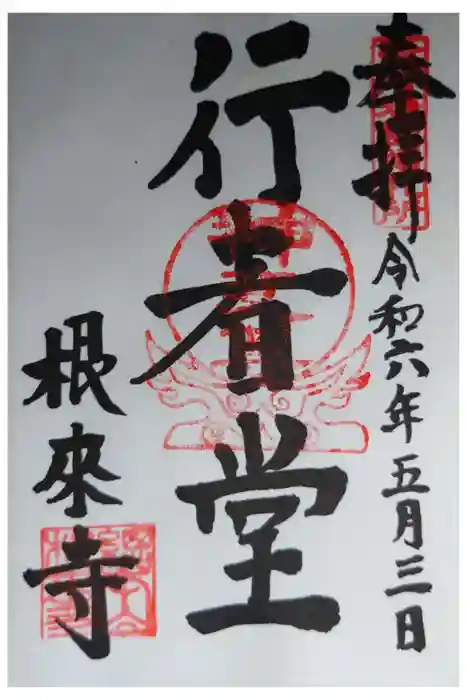 奉拝
令和六年五月三日
行者堂
根來寺